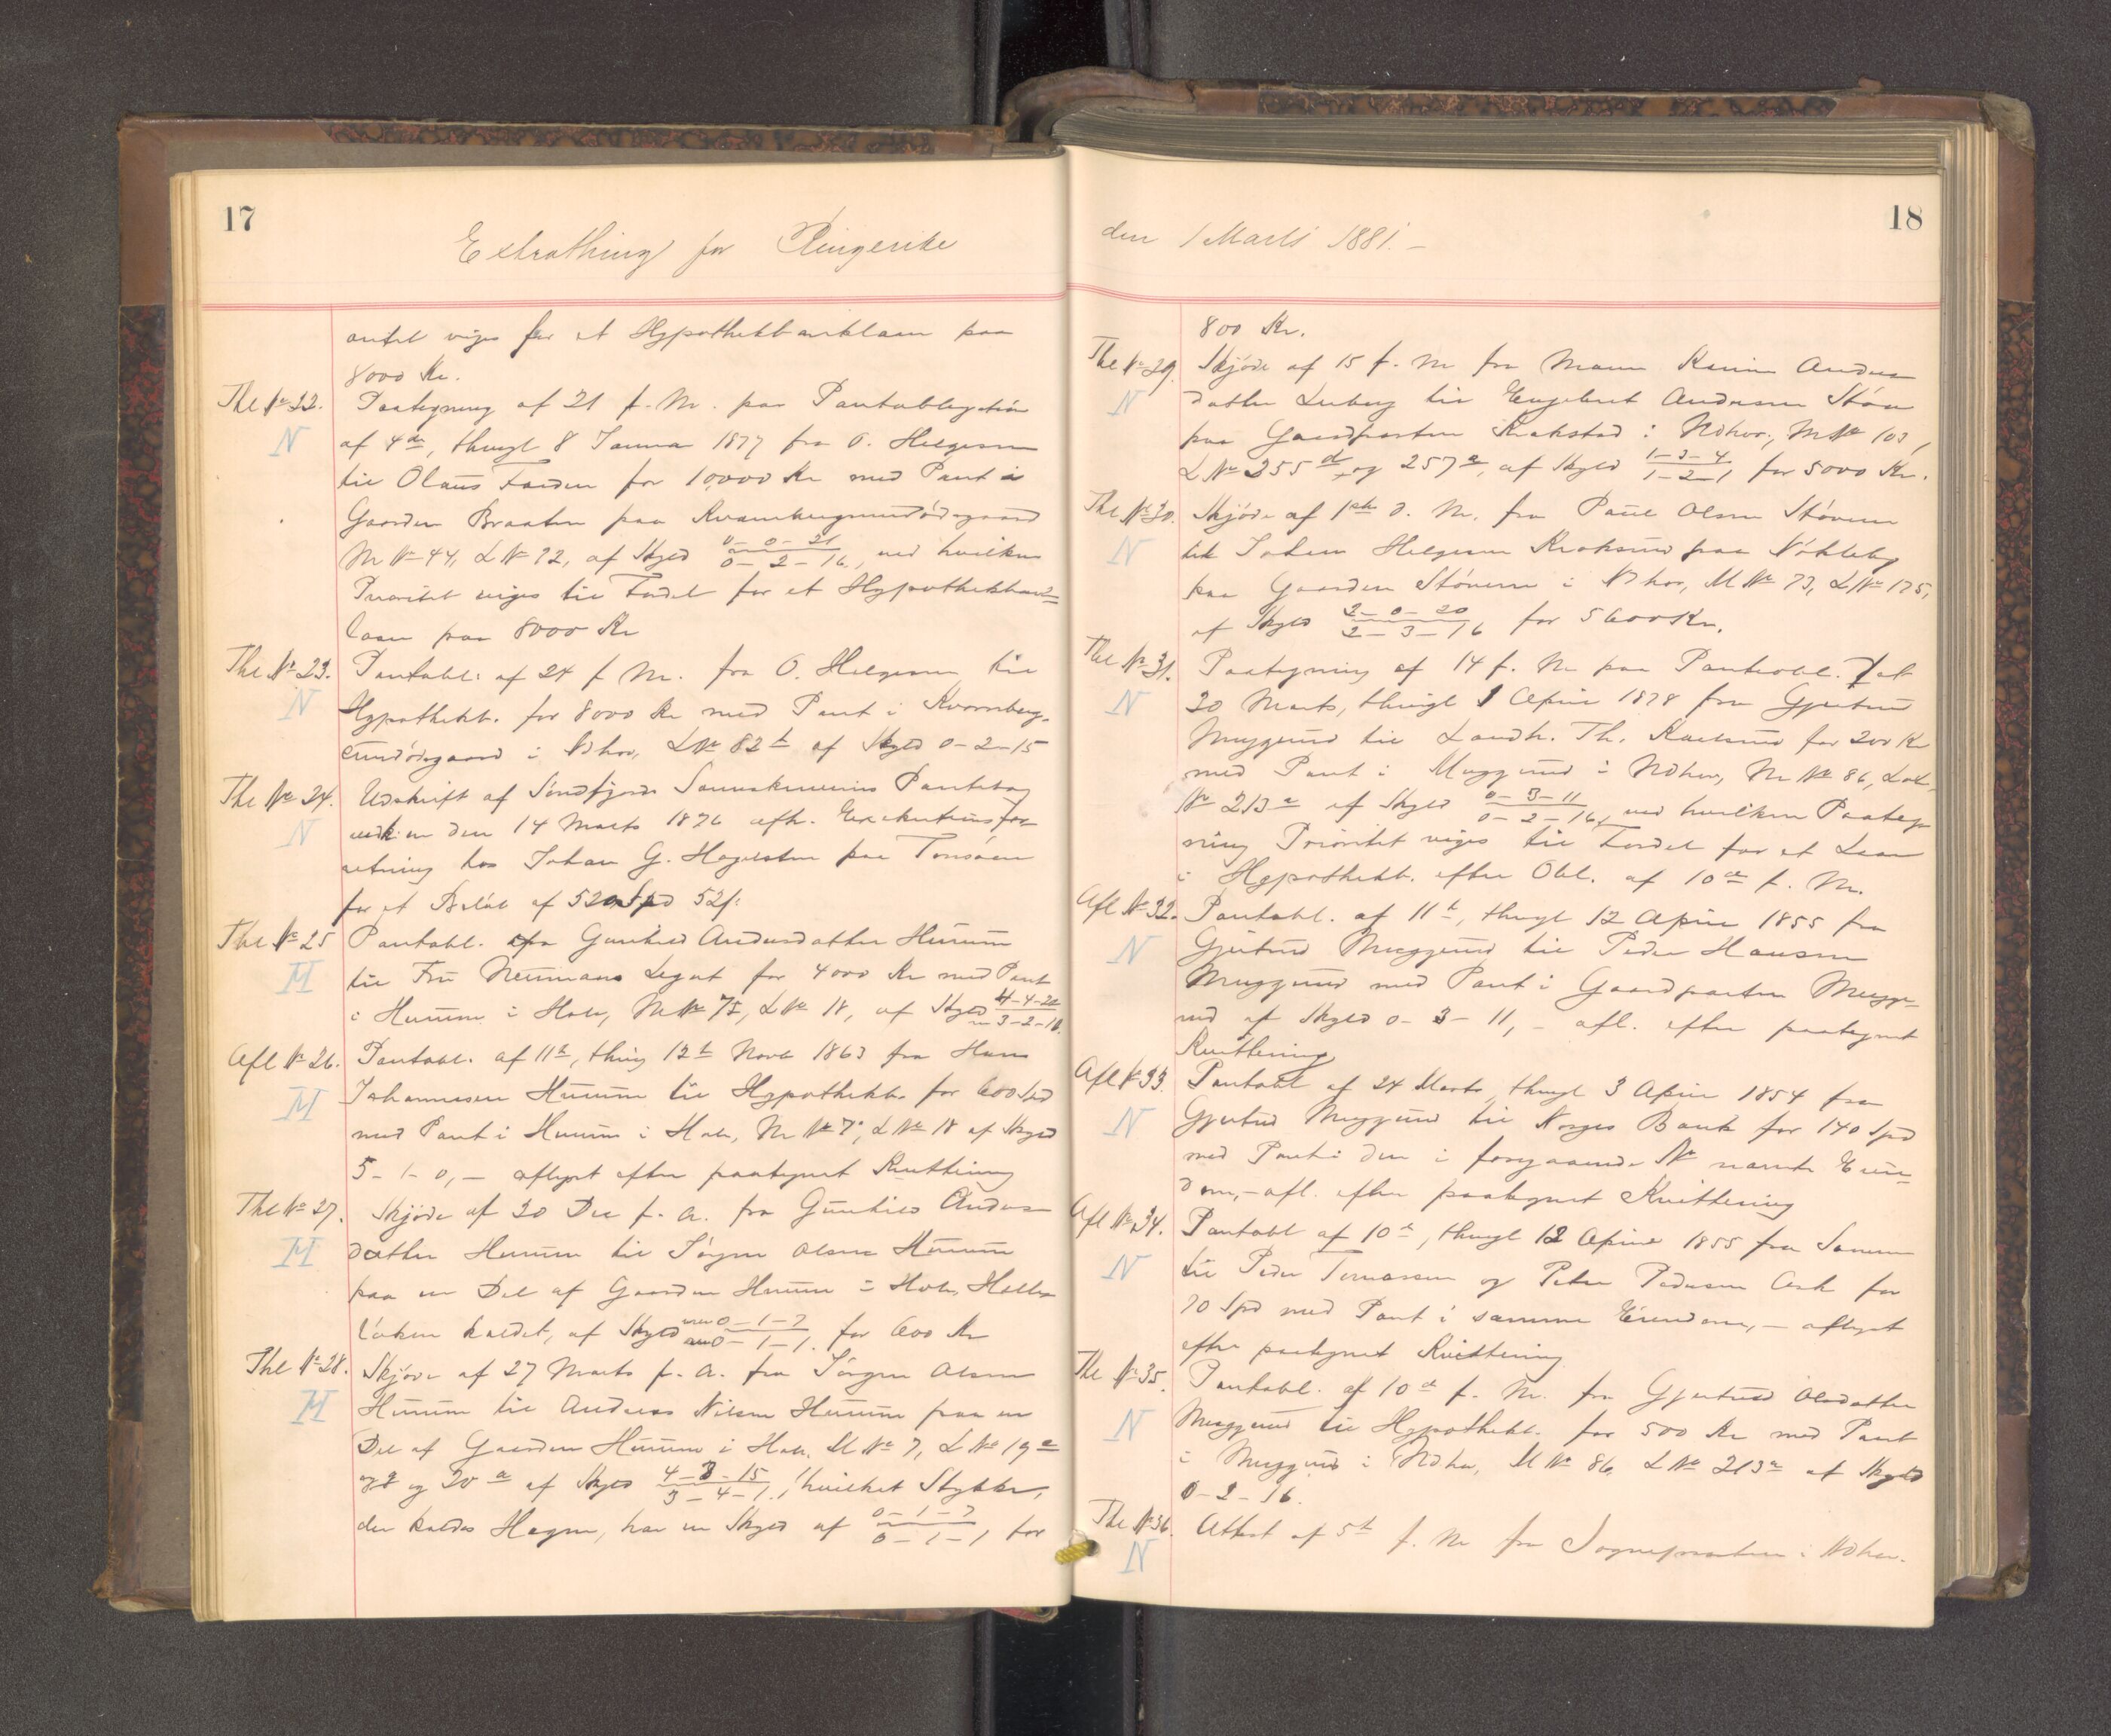 17
Extrathing for Ringerike
antet viges for et Hypothekbanklaan paa
8000 Kr.
Thl No 22. Paategning af 21 f. M. paa Pantobligation
N af 4de, thingl 8 Janua 1877 fra O. Helgesen
til Olaus Farden for 10,000 Kr med Pant i
Gaarden Braaten paa
M No 44, L No 92, af Skyld 0-0-21 / 0-2-16, ved hvilken
Prioritet viges til Fordel for et Hypothekbank=
laan paa 8000 Kr
Thl No 23. Pantobl: af 24 f M. fra O. Helgesen til
N Hypothekb. for 8000 Kr med Pant i Kvernberg-
sundødegaard i Ndhov, L No 82 b af Skyld 0-2-15
Thl No 24. Udskrift af Søndfjords Sorenskriveris Pantebog
N den 14 Marts 1876 afh. Executionsfor-
retning hos Johan G. Hagelsten paa Tonsåsen
for et Beløb af 520 Spd 52 f:
Thl No 25 Pantobl. fra Gunhild Andersdatter Hurum
H til Fru Neumans Legat for 4000 Kr med Pant
i Hurum i Hole, M No 75, L No 18, af Skyld 4-4-22 / 3-2-16.
Afl No 26. Pantobl. af 11te, thing 12te Novb 1863 fra Hans
H Johannesen Hurum til Hypothekb. for 600 Spd
med Pant i Hurum i Hole, M No 7, L No 18 af Skyld
5-1-0, — aflyst efter paategnet Kvittering
Thl No 27. Skjøde af 20 Dec f. A. fra Gunhild Anders
H datter Hurum til Jørgen Olsen Hurum
paa en Del af Gaarden Hurum i Hole,
kaldet, af Skyld 0-1-7 / 0-1-1. for 600 Kr
Thl No 28. Skjøde af 27 Marts f. A. fra Jørgen Olsen
H Hurum til Andreas Nilsen Hurum paa en
Del af Gaarden Hurum i Hole, M No 7, L No 19 a
og 20 a af Skyld 4-3-15 / 3-4-1., hvilket Stykke,
der kaldes Hagen, har en Skyld af 0-1-7 / 0-1-1 for
18
den 1 Marts 1881. —
800 Kr.
Thl No 29. Skjøde af 15 f. M fra Maren Karine Anders
N datter Luberg til Engebret Andersen Støen
paa Gaardparten Krakstad i Ndhov, M No 103,
L No 255 d og 257 a, af Skyld 1-3-4 / 1-2-1 for 5000 Kr.
Thl No 30. Skjøde af 1ste d. M. fra Paul Olsen Støveren
N til Johan Helgesen Kroksund paa Nökleby
paa Gaarden Støveren i Ndhov, M No 73, L No 175,
af Skyld 2-0-20 / 2-3-16 for 5600 Kr.
Thl No 31. Paategning af 14 f. M paa Pantobl. af
N 20 Marts, thingl 1 April 1878 fra Gjertrud
Muggerud til Landh. Th. for 200 Kr
med Pant i Muggerud i Ndhov, M No 86, Lob.
No 213 a af Skyld 0-3-11 / 0-2-16, ved hvilken Paateg-
ning Prioritet viges til Fordel for et Laan
i Hypothekb. efter Obl. af 10de f. M.
Afl No 32. Pantobl. af 11te, thingl 12 April 1855 fra
N Gjertrud Muggerud til Peder Hansen
Muggerud med Pant i Gaardparten Mugge-
rud af Skyld 0-3-11, — afl. efter paategnet
Kvittering
Afl No 33. Pantobl af 24 Marts, thingl 3 April 1854 fra
N Gjertrud Muggerud til Norges Bank for 140 Spd
med Pant i den i foregaaende No nævnte Eien-
dom, — afl. efter paategnet Kvittering
Afl No 34. Pantobl af 10de, thingl 12 April 1855 fra Samme
N til Peder Tomassen og Peter Pedersen Ask for
70 Spd med Pant i samme Eiendom, — aflyst
efter paategnet Kvittering
Thl No 35. Pantobl. af 10de f. M. fra Gjertrud Olsdatter
N Muggerud til Hypothekb. for 500 Kr med Pant
i Muggerud i Ndhov, M No 86, L No 213 a af Skyld
0-2-16.
Thl No 36. Attest af 5te f. M fra Sognepræsten i Ndhov.
N